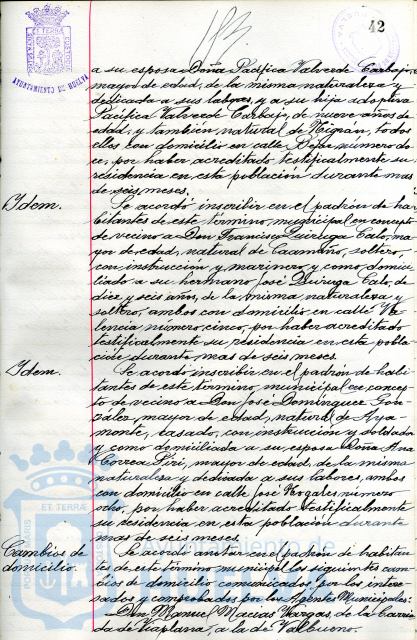 42
AYUNTAMIENTO DE HUELVA
a su esposa Doña Pacífica Valverde Carbajo,
mayor de edad, de la misma naturaleza y
dedicada a sus labores, y a su hija adoptiva
Pacífica Valverde Carbajo, de nueve años de
edad, y también natural de Nigrán, todos
ellos con domicilio en calle número do-
ce, por haber acreditado testificalmente su
residencia en esta población durante mas
de seis meses.
Idem.
Se acordó inscribir en el padrón de ha-
bitantes de este término municipal, en concepto
de vecino a Don Francisco Quiruga Calo, ma-
yor de edad, natural de soltero,
con instrucción y marinero, y como domici-
liado a su hermano José Quiruga Calo, de
diez y seis años, de la misma naturaleza y
soltero, ambos con domicilio en calle Va-
lencia número cinco, por haber acreditado
testificalmente su residencia en esta pobla-
ción durante mas de seis meses.
Idem.
Se acordó inscribir en el padrón de habi-
tantes de este término municipal, en concep-
to de vecino a Don José Domínguez Gon-
zález, mayor de edad, natural de Aya-
monte, casado, con instrucción y soldador
y como domiciliada a su esposa Doña Ana
Correa mayor de edad, de la misma
naturaleza y dedicada a sus labores, ambos
con domicilio en calle José Nogales, número
ocho, por haber acreditado testificalmente
su residencia en esta población durante
mas de seis meses.
Cambios de
domicilio.
Se acordó anotar en el padrón de habitan-
tes de este término municipal los siguientes cam-
bios de domicilio comunicados por los intere-
sados y comprobados por los Agentes Municipales:
Don Manuel Macías Vargas, de la Barria-
da de Viaplana, a la de Vallbueno.
ET TERRA
Ayuntamiento de